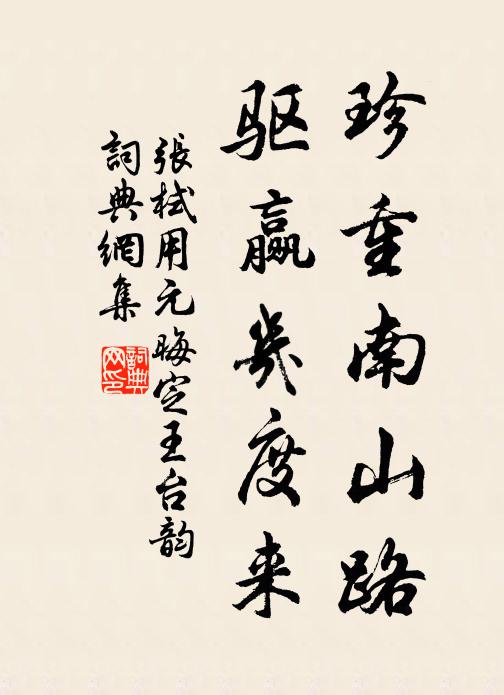 珍重南山路
驱羸幾度来
張栻用元晦定王台韵
詞典網集
詞典网印